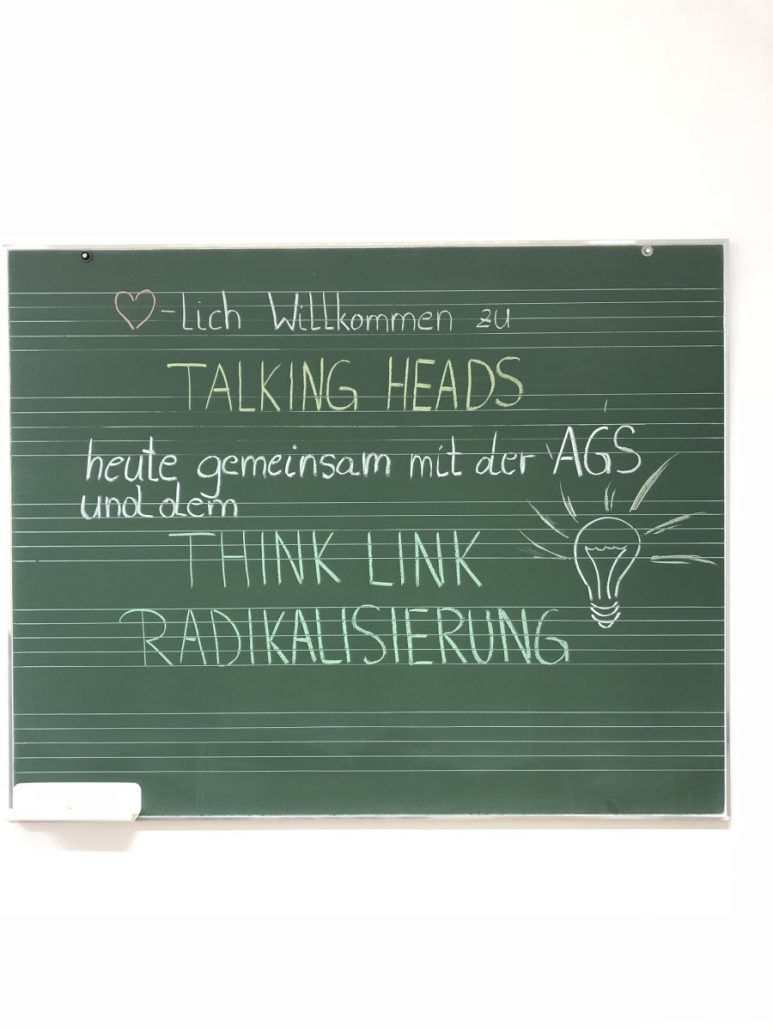 ♡-lich Willkommen zu
TALKING HEADS
heute gemeinsam mit der AGS
und dem
THINK LINK
RADIKALISIERUNG